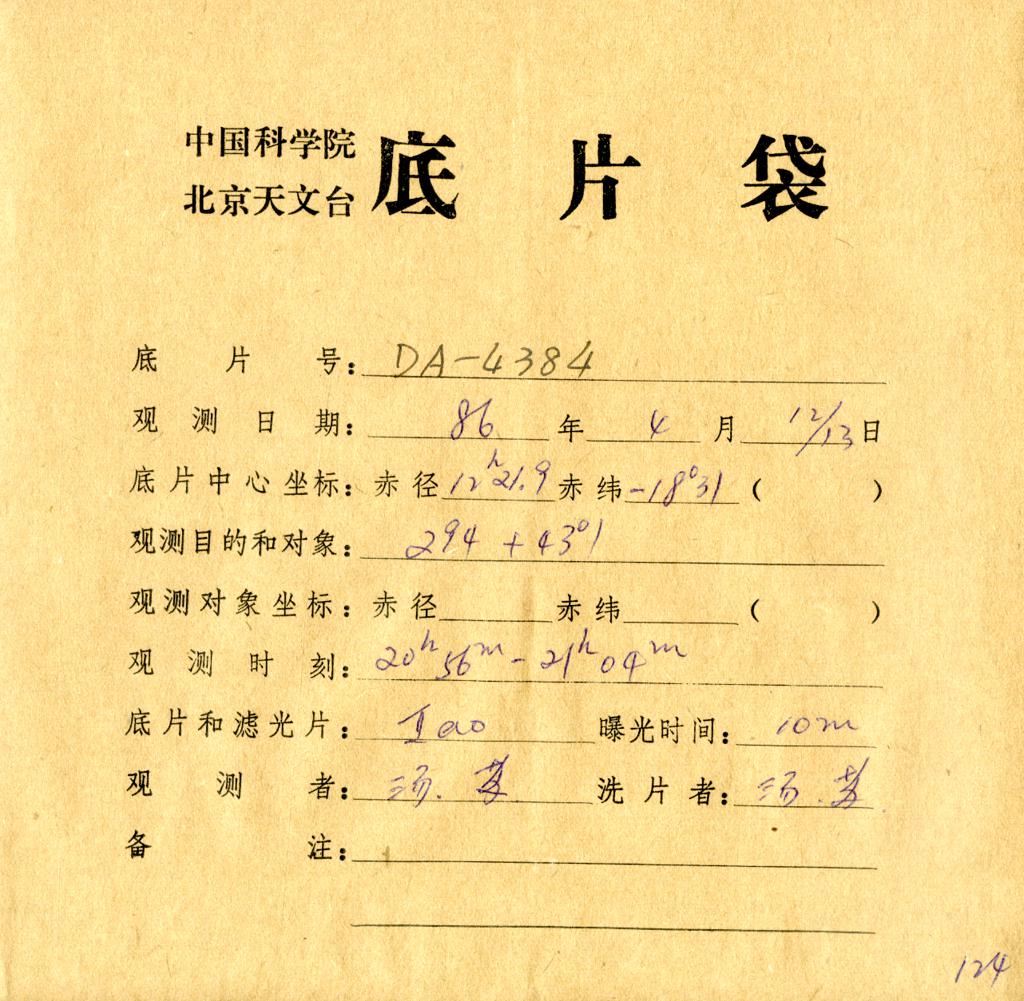 中国科学院
北京天文台
底片袋
底片号：DA-4384
观测日期：86年4月12/13日
底片中心坐标：赤径12ʰ21.9赤纬-18°31（ ）
观测目的和对象：294 +43°1
观测对象坐标：赤径 赤纬 （ ）
观测时刻：20ʰ56ᵐ-21ʰ04ᵐ
底片和滤光片：IIao 曝光时间：10m
观测者：汤. 洗片者：汤.
备注：
124